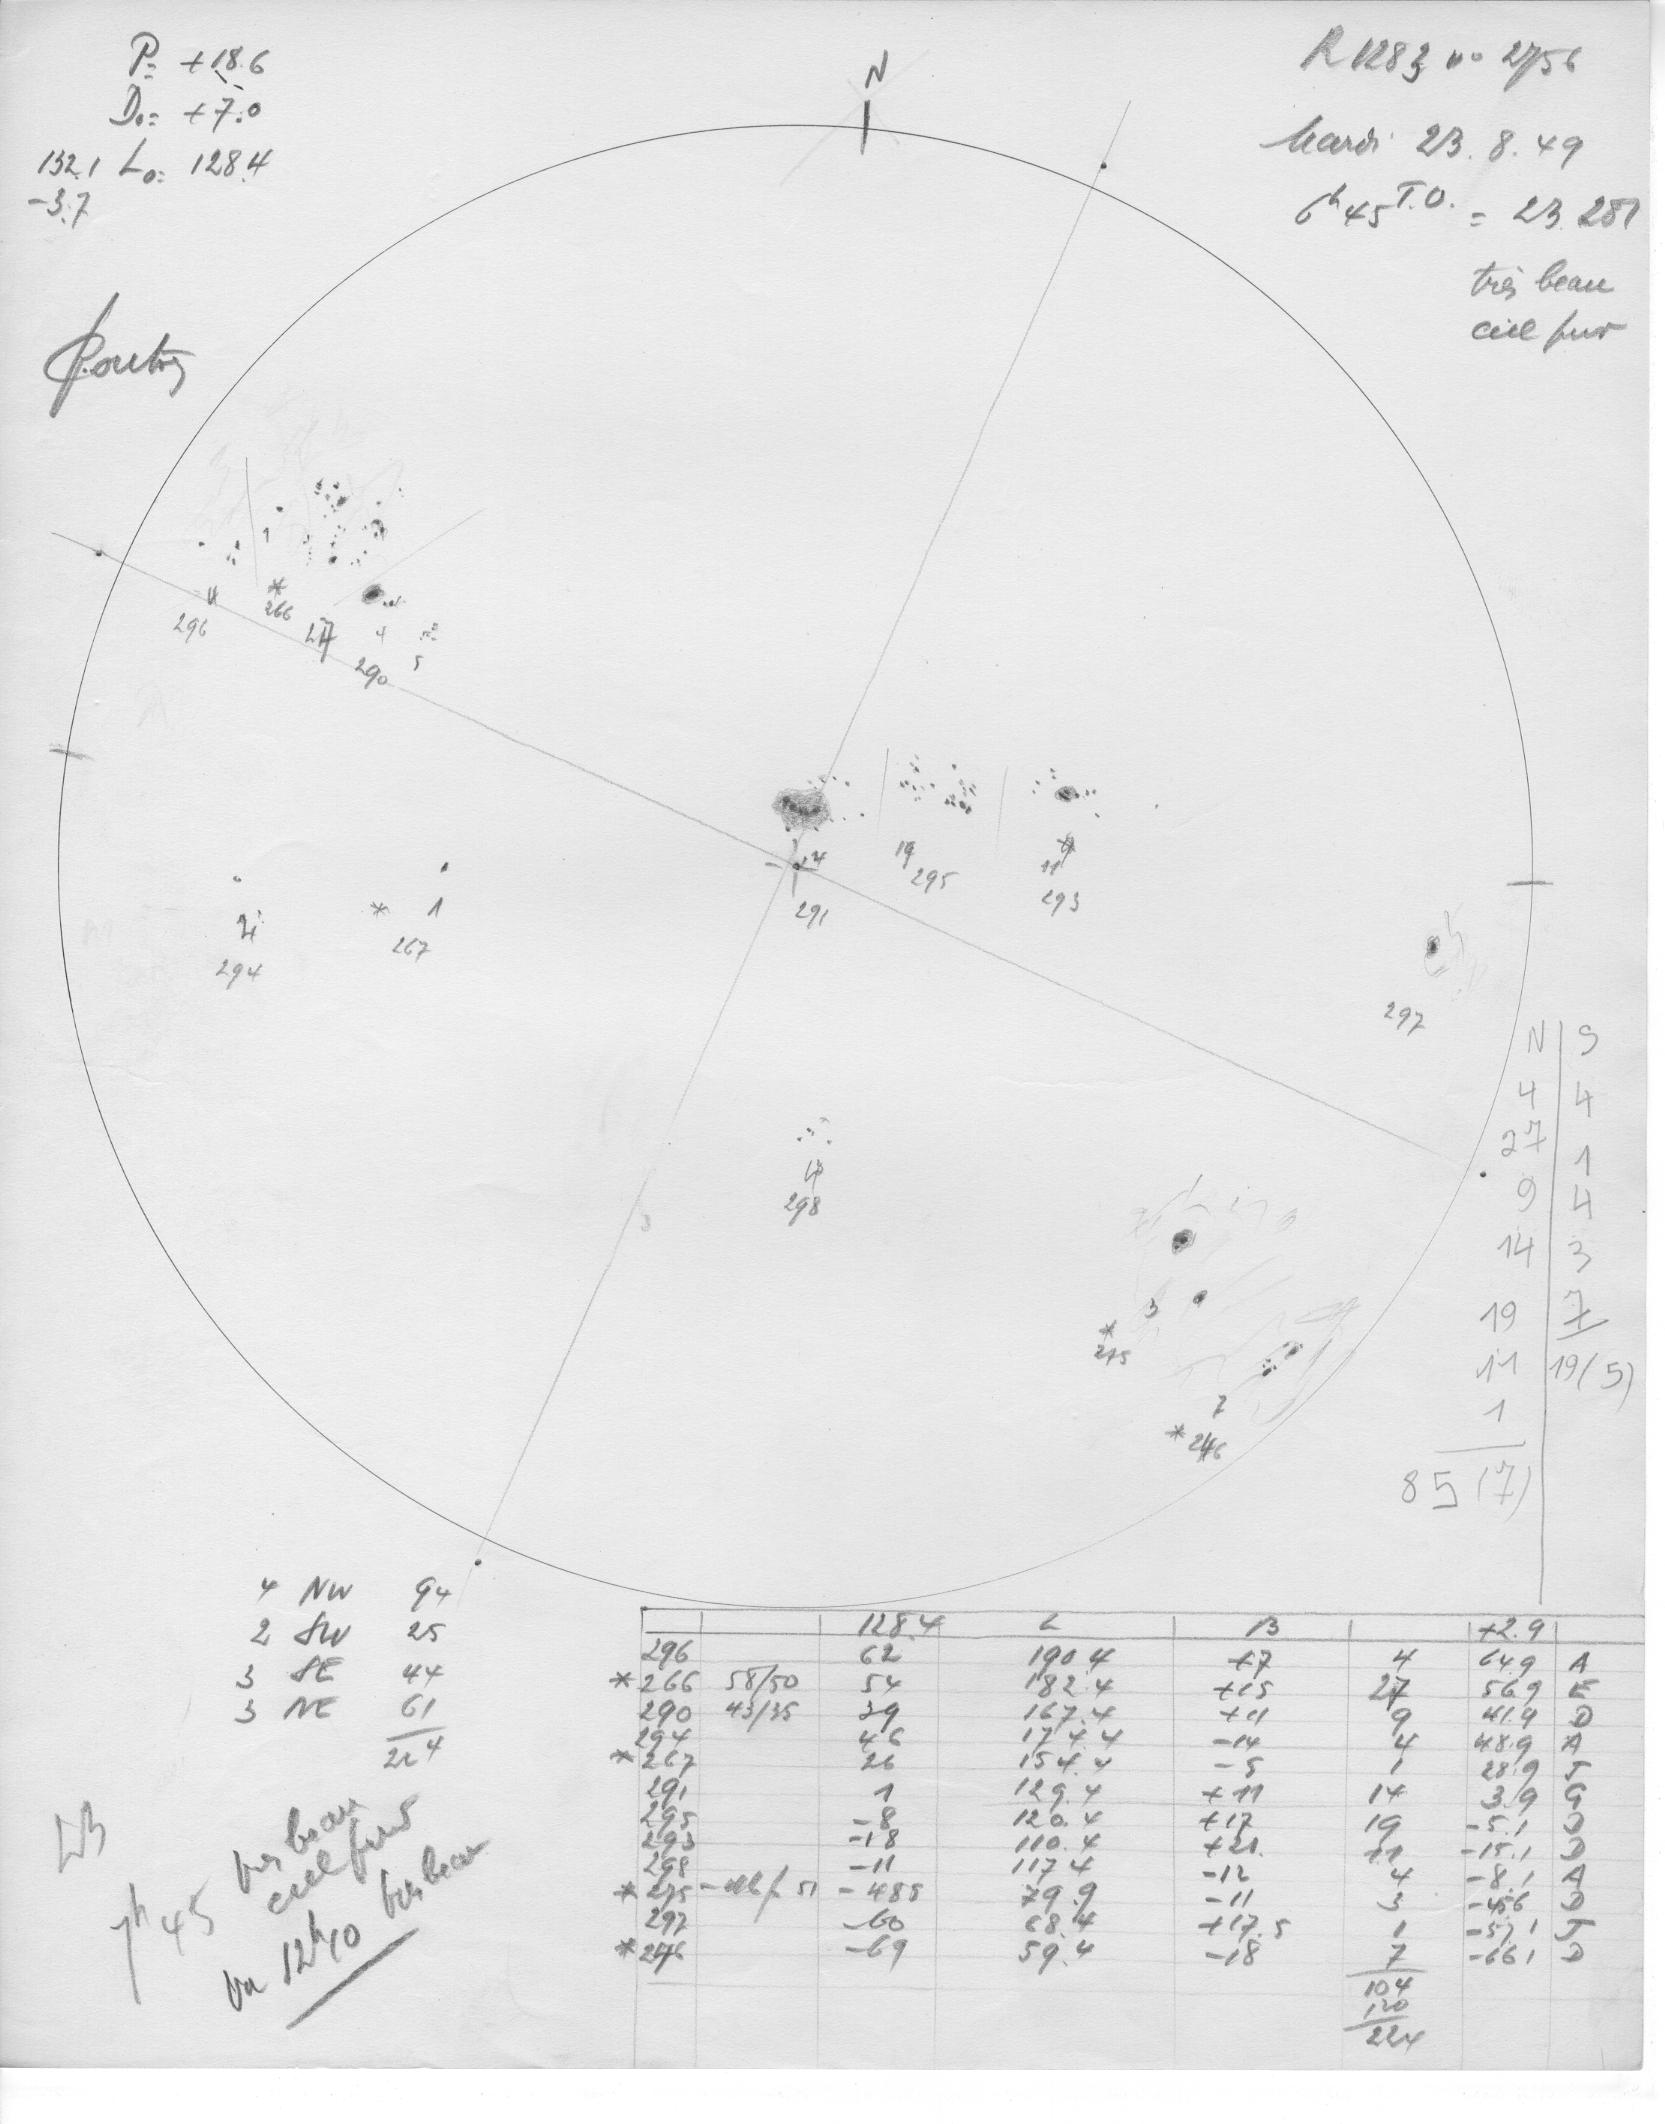 P= +18.6
D₀= +7.0
132.1 L₀= 128.4
-3.7
N
R 1283 no 2756
Mardi 23.8.49
6h 45 T.O. = 23.281
très beau
ciel pur
1
*
266
296
27
4
290
5
4
294
*
1
267
14
291
19
295
11
293
297
4
298
3
*
275
7
* 246
N | S
4 | 4
27 | 1
9 | 4
14 | 3
19 | 7
11 | 19(5)
1
85 (7)
4 NW 94
2 SW 25
3 SE 44
3 NE 61
224
très beau
ciel pur
7h 45 très beau
12h10
128.4 L B +2.9
296 62 190.4 +7 4 64.9 A
*266 58/50 54 182.4 +15 27 56.9 E
290 43/35 39 167.4 +11 9 41.9 D
294 46 174.4 -14 4 48.9 A
*267 26 154.4 -5 1 28.9 J
291 1 129.4 +11 14 3.9 G
295 -8 120.4 +17 19 -5.1 D
293 -18 110.4 +21 11 -15.1 D
298 -11 117.4 -12 4 -8.1 A
*275 51 -48.5 79.9 -11 3 -45.6 D
297 -60 68.4 +17.5 1 -57.1 J
*246 -69 59.4 -18 7 -66.1 D
104
120
224